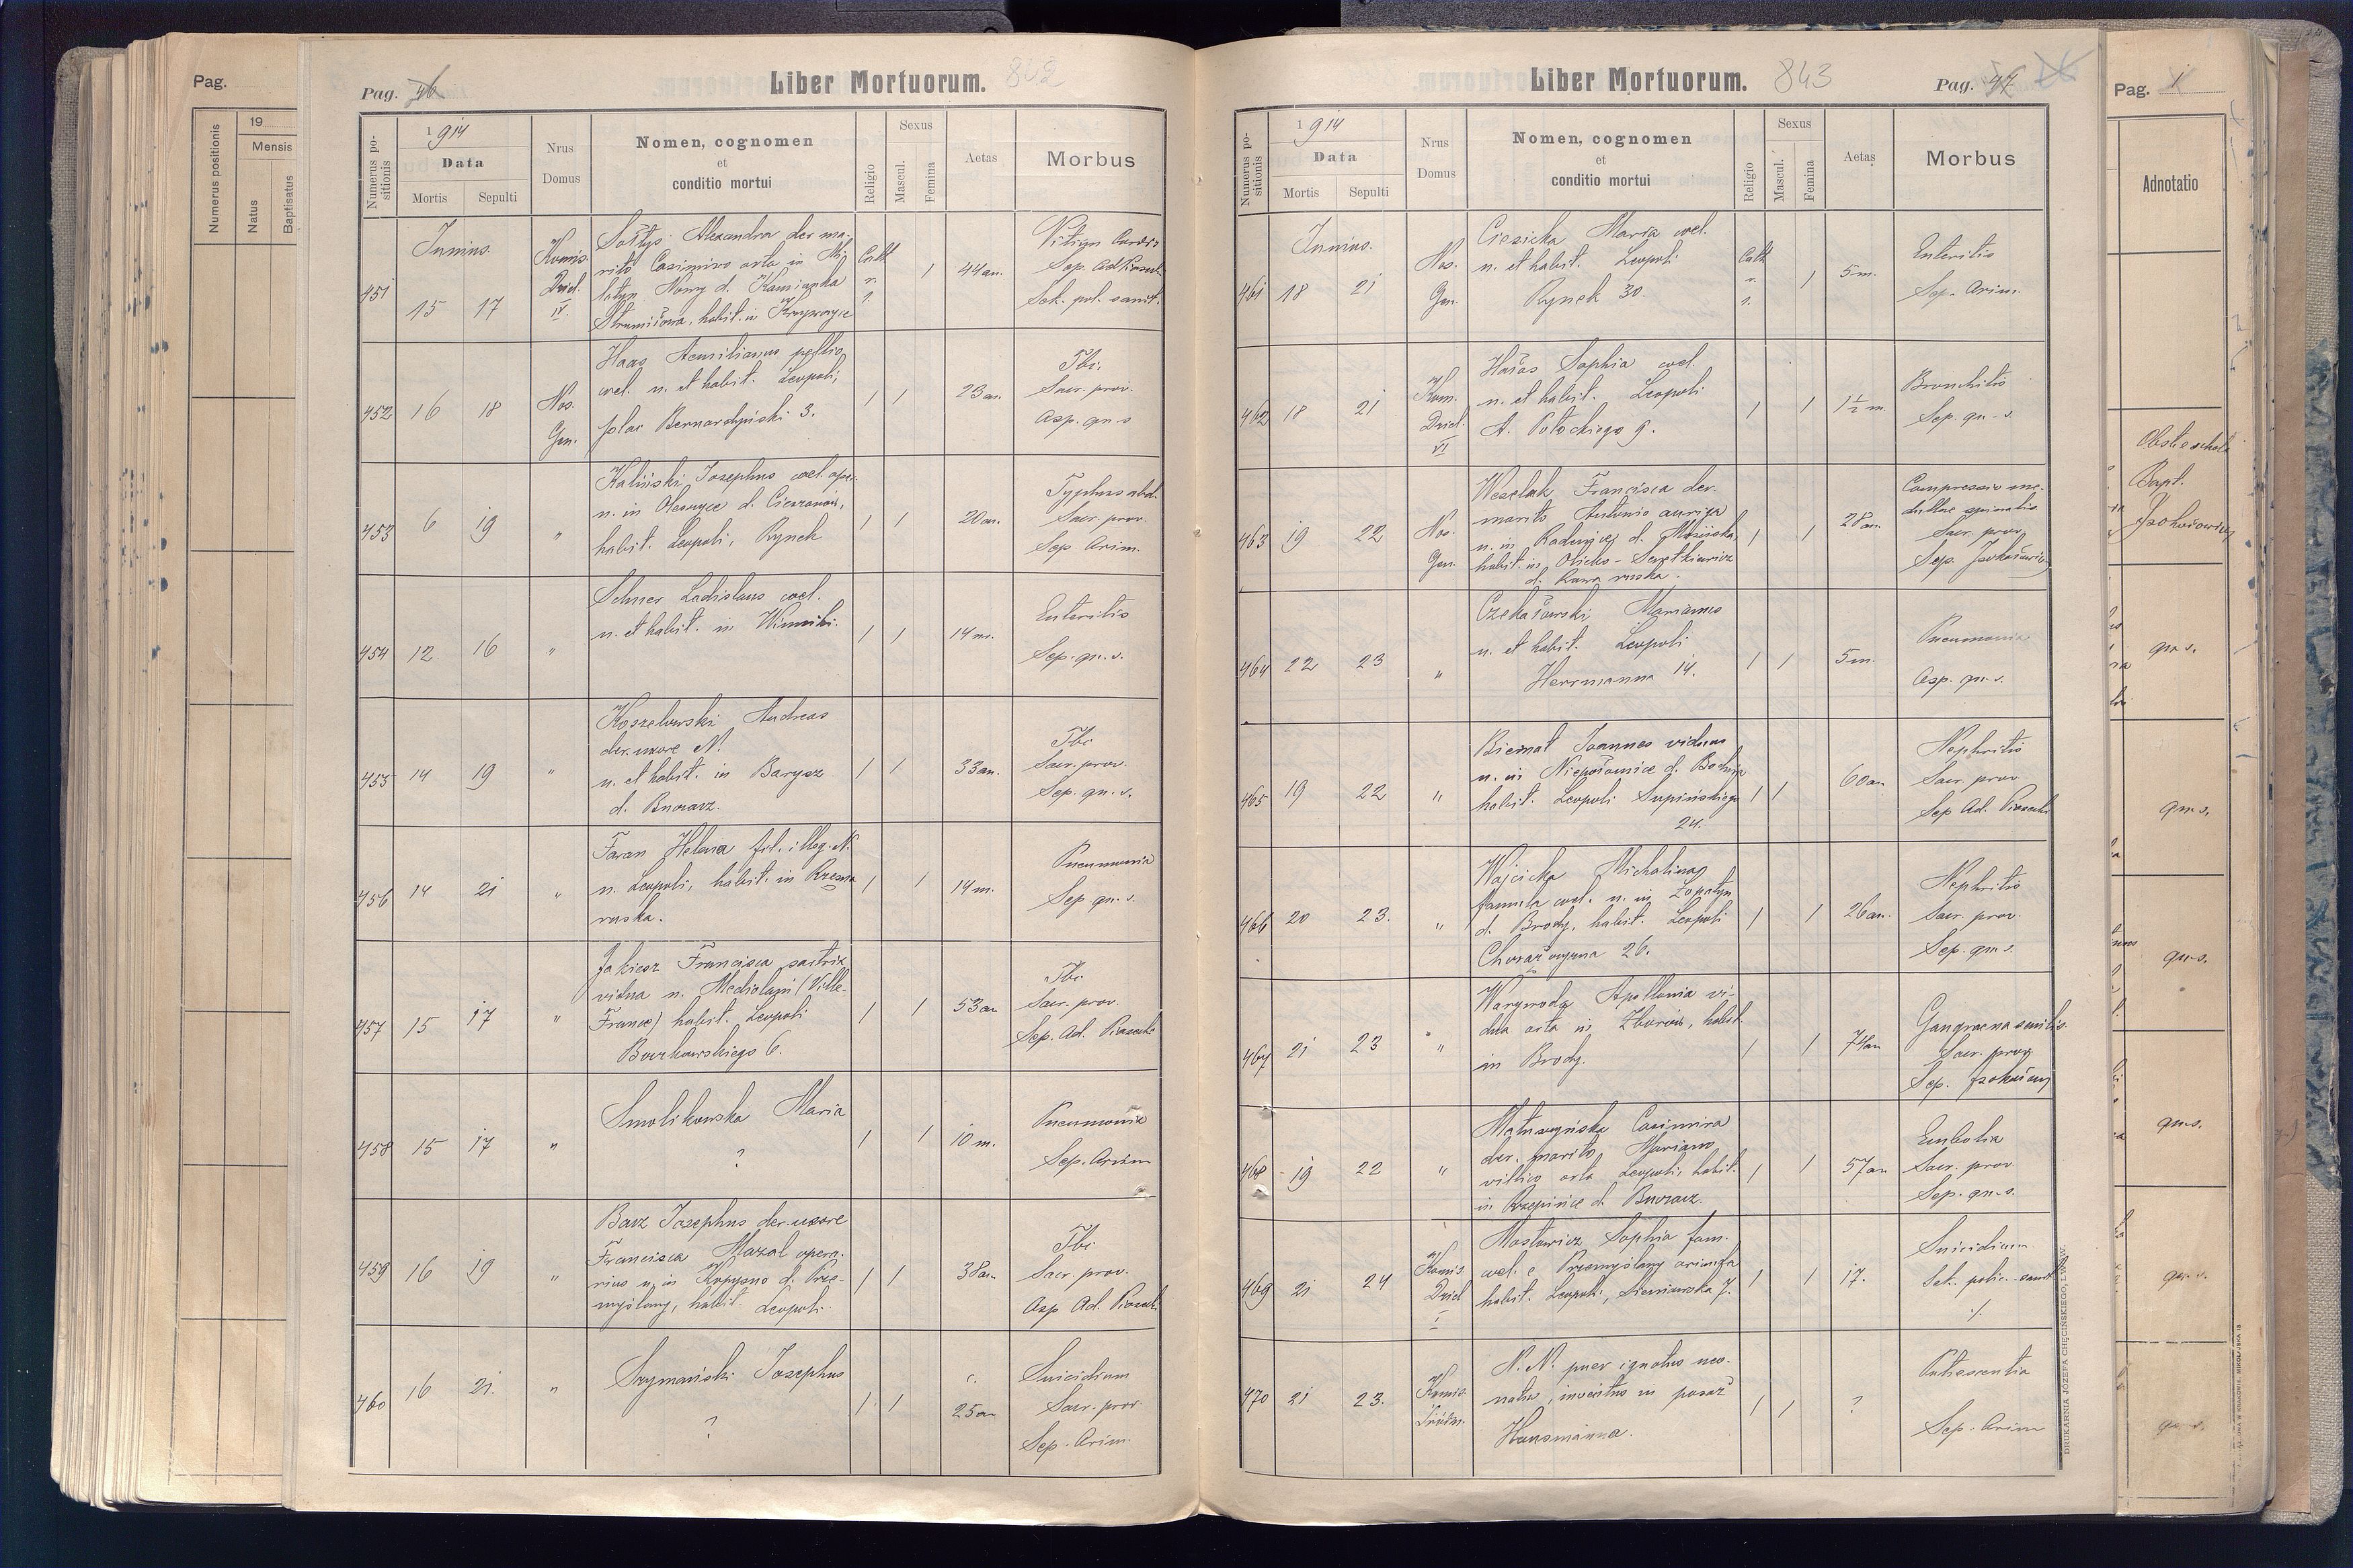 Pag.
Numerus positionis
19
Mensis
Natus
Baptisatus
Pag. 46
Liber Mortuorum. 842
Numerus positionis
1914
Data
Mortis Sepulti
Nrus Domus
Nomen, cognomen
et
conditio mortui
Religio
Sexus
Mascul.
Femina
Aetas
Morbus
Junius.
451 15 17
Komis. Dziel. IV.
Sołtys Alexandra der ma-
rito Casimiro orta in Mi-
łatyn Nowy d. Kamianka
Strumiłowa, habit. in Krzywczyce
Cath r. l.
1 44 an.
Vitium Cordis
Sep. Ad Piasecki
Sek. pol. sanit.
452 16 18
Nos. Gen.
Haas Aemilianus pellio
coel. n. et habit. Leopoli,
plac Bernardyński 3.
1 1 23 an.
Tbc.
Sacr. prov.
Asp. qu-s
453 6 19 "
Kaliński Josephus coel. ope.
n. in Oleszyce d. Cieszanów,
habit. Leopoli, Rynek
1 1 20 an.
Typhus abd.
Sacr. prov.
Sep. Arim.
454 12. 16 "
Schner Ladislaus coel.
n. et habit. in Winniki.
1 1 14 m.
Enteritis
Sep. qu. s.
455 14 19 "
Koszelowski Andreas
der. uxore N.
n. et habit. in Barysz
d. Buczacz.
1 1 33 an.
Tbc
Sacr. prov.
Sep. qu. s.
456 14 21 "
Faran Helena fil. illeg. N.
n. Leopoli, habit. in
ruska.
1 1 14 m.
Pneumonia
Sep qu. s.
457 15 17 "
Jakiesz Francisca sartrix
vidua n. Mediolani (Ville-
France) habit. Leopoli
Borkowskiego 6.
1 1 53 an
Tbc
Sacr. prov.
Sep. Ad. Piasecki
458 15 17 "
Smolikowska Maria
?
1 1 10 m.
Pneumonia
Sep. Arim
459 16 19 "
Barz Josephus der. uxore
Francisca Mazal opera-
rius n. in d. Prze-
myślany, habit. Leopoli
1 1 38 an.
Tbc
Sacr. prov.
Asp Ad. Piasecki
460 16 21. "
Szymański Josephus
?
1 1 c. 25 an
Suicidium
Sacr. prov
Sep. Arim.
Liber Mortuorum. 843
Pag. 47
Numerus positionis
1914
Data
Mortis Sepulti
Nrus Domus
Nomen, cognomen
et
conditio mortui
Religio
Sexus
Mascul.
Femina
Aetas
Morbus
Junius.
461 18 21
Nos. Gen.
Ciesicka Maria coel.
n. et habit. Leopoli
Rynek 30.
Cath r. l.
1 5 m.
Enteritis
Sep. Arim.
462 18 21
Kom. Dziel. VI
Hałas Sophia coel.
n. et habit. Leopoli
A. Potockiego 9.
1 1 1½ m.
Bronchitis
Sep. qu-s.
463 19 22
Nos. Gen.
Weselak Francisca der.
marito Antonio auriga
n. in Radenice d. Mościska
habit. in
d. Rawa ruska.
1 1 28 an.
Compressio me-
dullae spinalis
Sacr. prov.
Sep.
464 22 23 "
Czekałowski Marianus
n. et habit. Leopoli
Herrmanna 14.
1 1 5 m.
Pneumonia
Asp. qu-s.
465 19 22 "
Biernat Joannes viduus
n. in Niepołomice d. Bochnia
habit. Leopoli Supińskiego
24.
1 1 60 an
Nephritis
Sacr. prov
Sep Ad. Piasecki
466 20 23. "
Wójcicka Michalina
famula coel. n. in Łopatyn
d. Brody, habit. Leopoli
Chorążczyzna 26.
1 1 26 an.
Nephritis
Sacr. prov.
Sep. qu-s.
467 21 23 "
Worywoda Apollonia vi-
dua orta in Zborów, habit.
in Brody.
1 1 74 an
Gangraena senilis
Sacr. prov
Sep.
468 19 22 "
Matuszyńska Casimira
der. marito Mariano
villico orta Leopoli, habit.
in Rzepińce d. Buczacz.
1 1 57 an
Embolia
Sacr. prov.
Sep. qu-s.
469 21 24
Komis. Dziel I
Mostowicz Sophia fam.
coel. e Przemyślany oriunda
habit. Leopoli, Sieniawska 7.
1 1 17.
Suicidium
Sek. polic. sanit
./.
470 21 23.
Komis.
N. N. puer ignotus neo-
natus, inventus in pasaż
Hausmanna.
1 1 ?
Putrescentia
Sep. Arim
DRUKARNIA JÓZEFA CHĘCIŃSKIEGO, LWÓW.
Pag. 1
Adnotatio
Bapt.
qu. s.
qu. s.
qu-s.
qu-s.
qu. s.
qu. s.